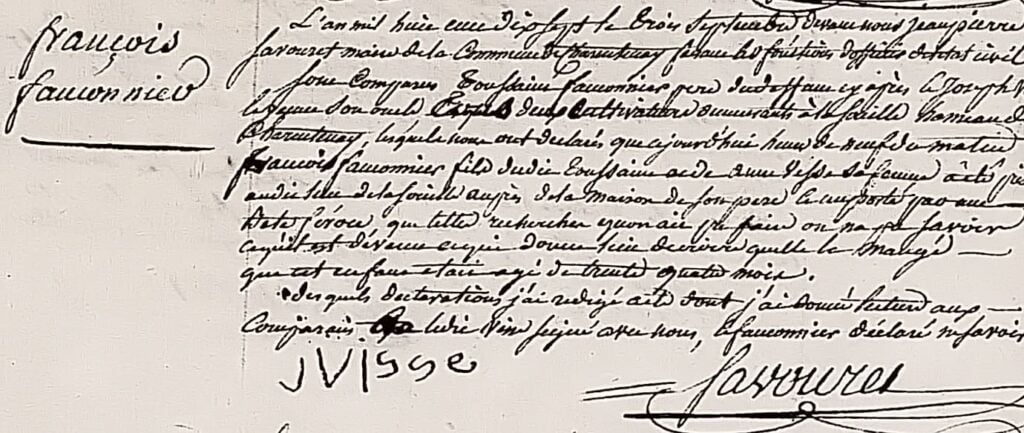 françois
fauconnier
L'an mil huit cent dix sept le trois Septembre devant nous jean pierre
Savouret maire de la Commune de Charentenay faisant les fonctions d'officier de l'etat civil
sont Comparus Toussaint fauconnier pere du deffant cy après le Joseph
Son oncle tous deux Cultivateurs demeurants à la hameau de
Charentenay, lesquels nous ont déclarés que ajourd'hui heure de neuf du matin
françois fauconnier fils dudit Toussaint et de anne Visse Sa femme à été pris
audit lieu de la auprès de la maison de son pere et emporté par une
Bete féroce, que telle recherches qu'on ait pu faire on na pu savoir
ce qu'il est dévenu ce qui donne lieu de croire qu'elle la mangé —
que cet enfant etait agé de trente quatre mois.
desquels declarations j'ai redigé acte dont j'ai donné lecture aux —
Comparants ledit Visse signé avec nous, le fauconnier déclaré ne savoir
JVisse
Savouret